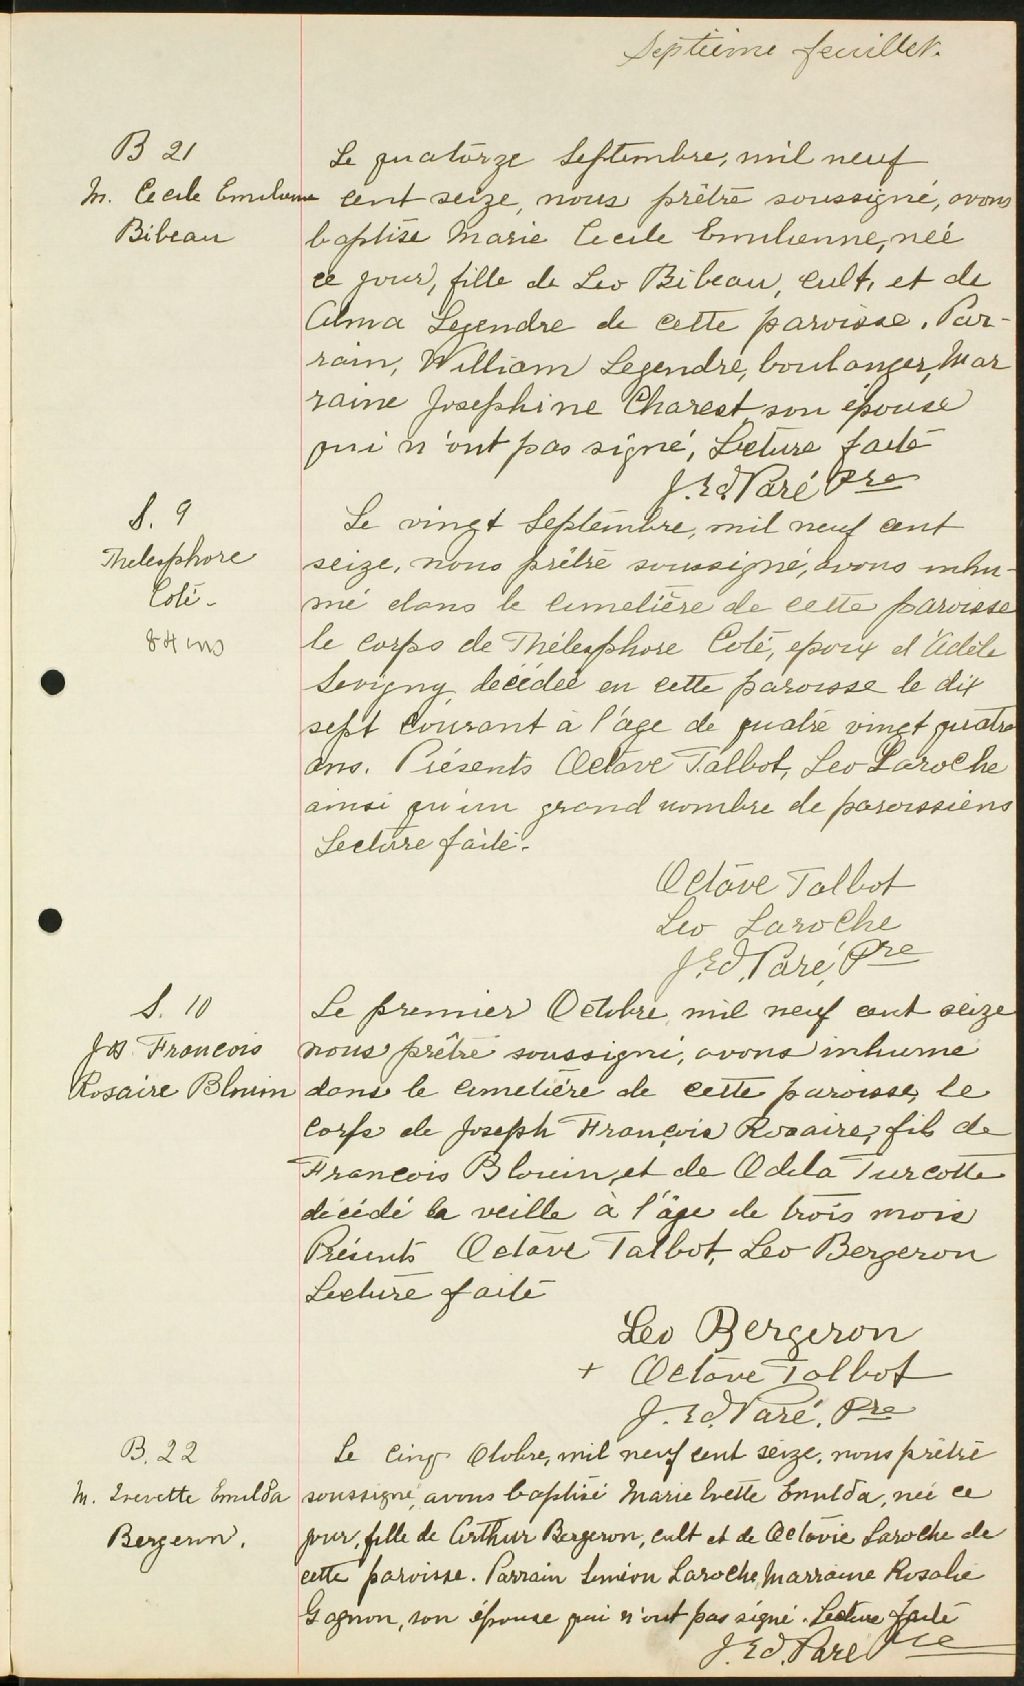 Septième feuillet.
B 21
M. Cecile Emilienne
Bibeau
Le quatorze Septembre, mil neuf
cent seize, nous prêtre soussigné, avons
baptisé Marie Cecile Emilienne, née
ce jour, fille de Leo Bibeau, cult, et de
Alma Legendre de cette paroisse. Par-
rain, William Legendre, boulanger, Mar
raine Josephine Charest son épouse
qui n'ont pas signé, Lecture faite
J. Ed. Paré Ptre
S. 9
Thelesphore
Coté.
84 ans
Le vingt Septembre, mil neuf cent
seize, nous prêtre soussigné, avons inhu-
mé dans le cimetière de cette paroisse
le corps de Thélesphore Coté, epoux d'Adèle
Sevigny decédée en cette paroisse le dix
sept courant à l'age de quatre vingt quatre
ans. Présents Octave Talbot, Leo Laroche
ainsi qu'un grand nombre de paroissiens
Lecture faite.
Octave Talbot
Leo Laroche
J. Ed. Paré, Ptre
S. 10
Jos. Francois
Rosaire Blouin
Le premier Octobre mil neuf cent seize
nous prêtre soussigné, avons inhume
dans le cimetière de cette paroisse, le
corps de Joseph François Rosaire, fils de
François Blouin, et de Odila Turcotte
décédé la veille à l'âge de trois mois
Présents Octave Talbot, Leo Bergeron
Lecture faite
Leo Bergeron
+ Octave Talbot
J. Ed. Paré, Ptre
B. 22
M. Ivevette Emilda
Bergeron.
Le cinq Octobre, mil neuf cent seize, nous prêtre
soussigné, avons baptisé Marie Ivette Emilda, née ce
jour, fille de Arthur Bergeron, cult et de Octavie Laroche de
cette paroisse. Parrain Simeon Laroche, Marraine Rosalie
Gagnon, son épouse qui n'ont pas signé. Lecture faite
J. Ed. Paré Ptre